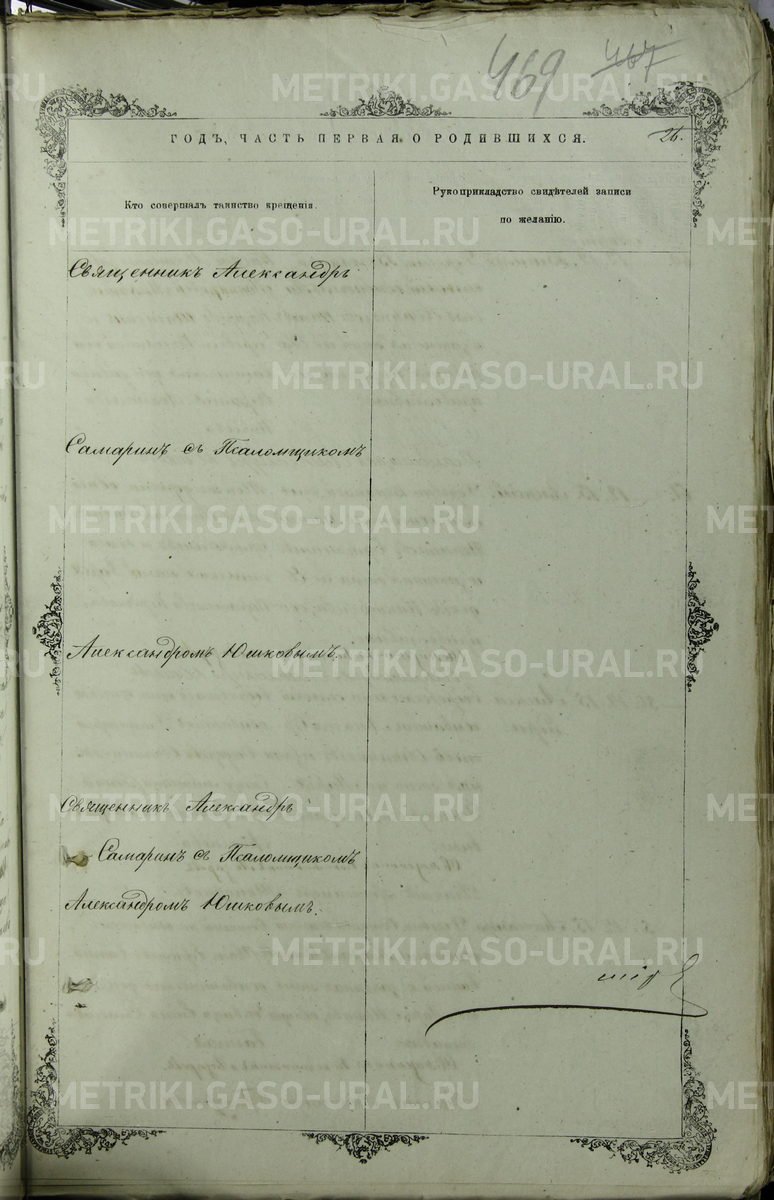 469 467
ГОДЪ, ЧАСТЬ ПЕРВАЯ О РОДИВШИХСЯ.
26.
Кто совершалъ таинство крещенія.
Рукоприкладство свидѣтелей записи
по желанію.
Священникъ Александръ
Самаринъ съ Псаломщикомъ
Александромъ Юшковымъ.
Священникъ Александръ
Самаринъ съ Псаломщикомъ
Александромъ Юшковымъ.
METRIKI.GASO-URAL.RU